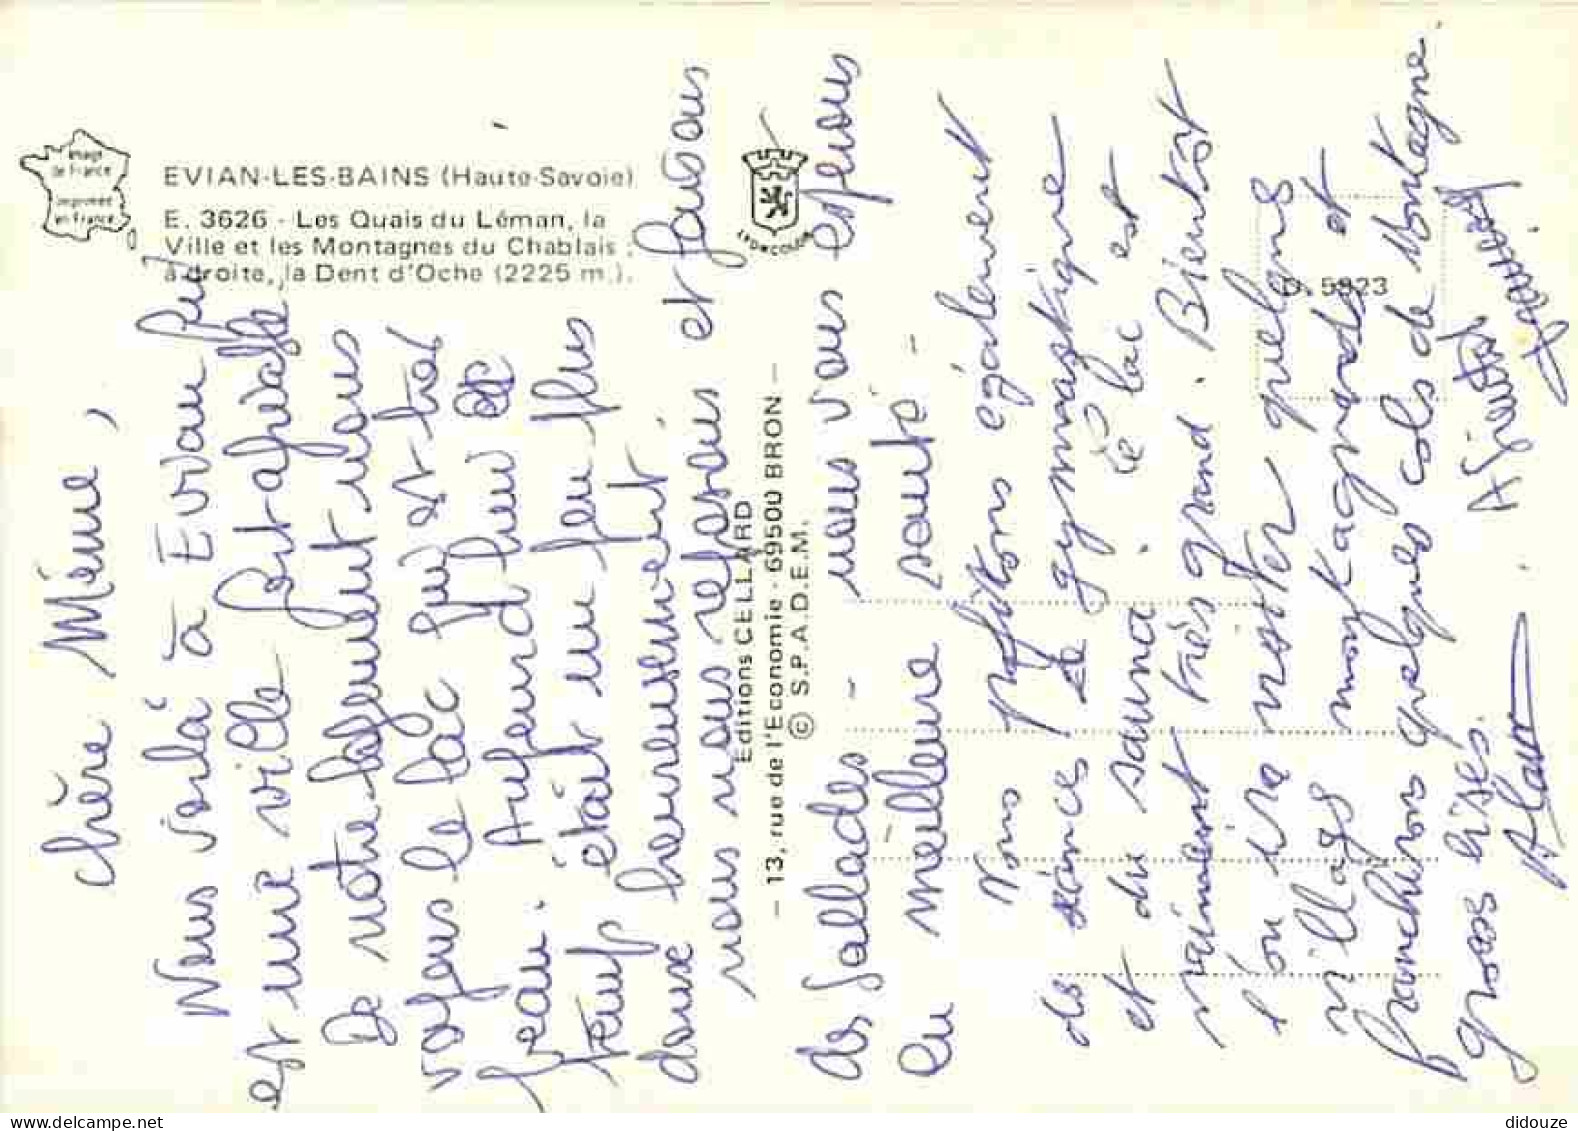 Image
de France
imprimée
en France
EVIAN-LES-BAINS (Haute-Savoie)
E. 3626 - Les Quais du Léman, la
Ville et les Montagnes du Chablais ;
à droite, la Dent d'Oche (2225 m.).
LYONCOLOR
D. 5923
Editions CELLARD
— 13, rue de l'Economie - 69500 BRON —
© S.P.A.D.E.M.
chère Mémé,
Nous voilà à Evian qui
est une ville fort agréable
De notre logement nous
voyons le lac qui est très
beau. Aujourd'hui le
temps était un peu plus
doux heureusement.
nous nous reposons et faisons
des ballades - nous vous espérons
en meilleure santé -
Nous profitons également
des séances de gymnastique
et du sauna. Le lac est
vraiment très grand. Bientôt
l'on ira visiter quelques
villages montagnards et
franchirons quelques cols de Montagne.
grosses bises.
Alan
didouze